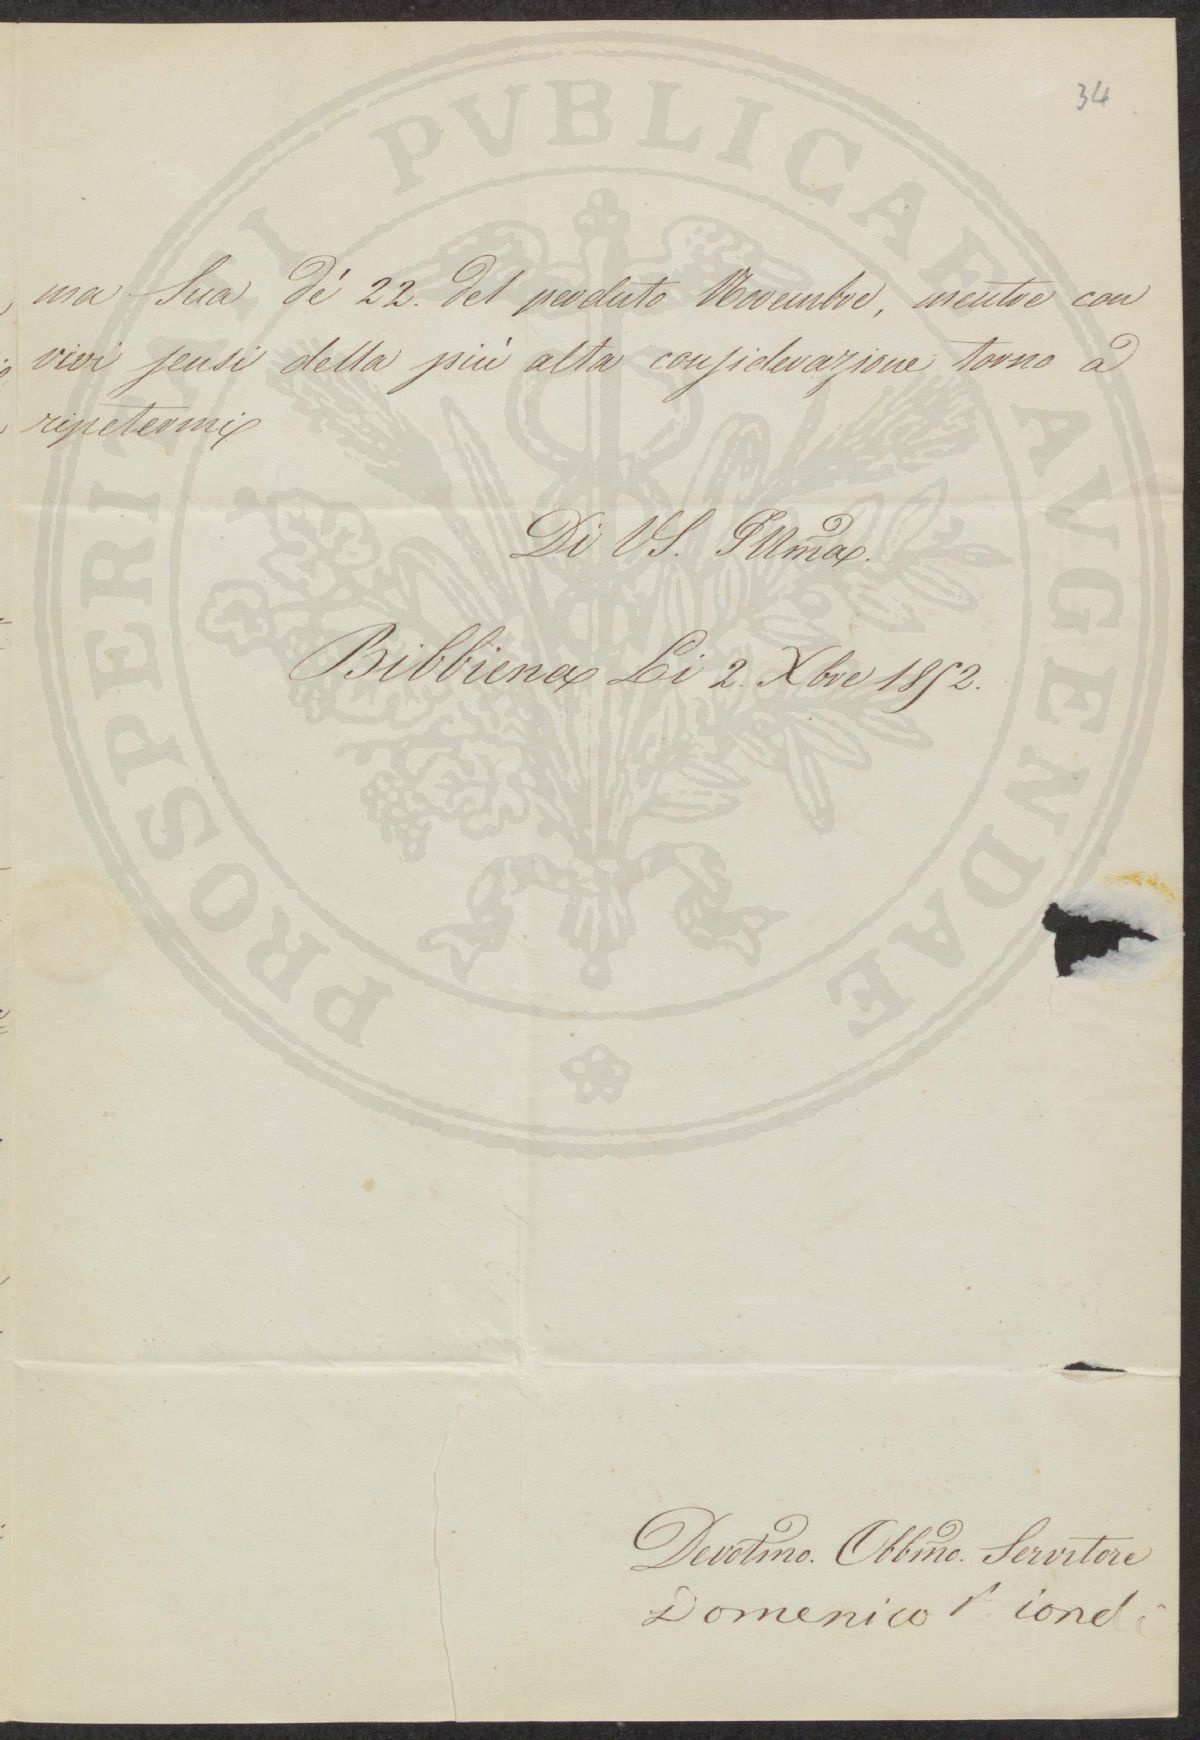 34
ma Sua de' 22. del perduto Novembre, mentre con
vivi sensi della più alta considerazione torno a
ripetermi
Di VS. Illma.
Bibbiena Li 2. Xbre 1852.
Devotmo. Obbmo. Servitore
Domenico
PROSPERITATI PVBLICAE AVGENDAE